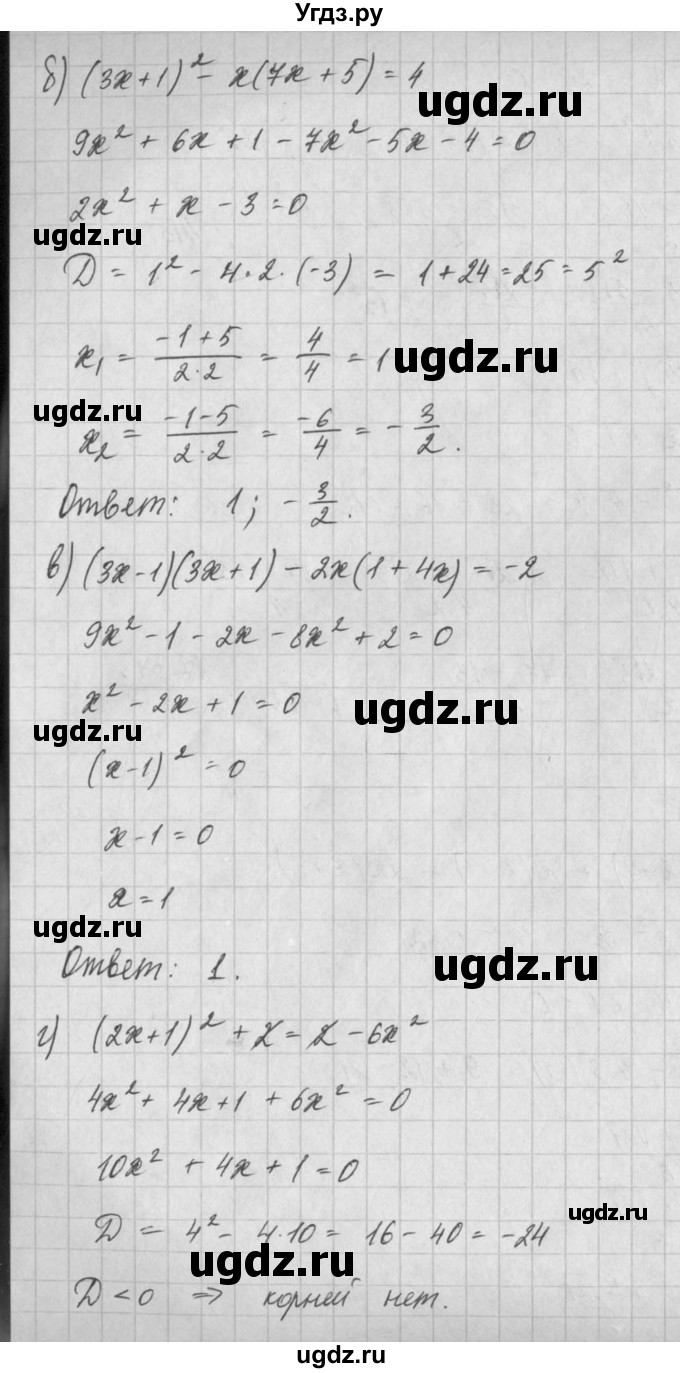 Угдз.ру
б) (3x+1)² - x(7x+5) = 4
ugdz.ru
9x² + 6x + 1 - 7x² - 5x - 4 = 0
2x² + x - 3 = 0
ugdz.ru
D = 1² - 4·2·(-3) = 1 + 24 = 25 = 5²
x₁ = (-1+5)/(2·2) = 4/4 = 1
ugdz.ru
ugdz.ru
x₂ = (-1-5)/(2·2) = -6/4 = -3/2.
Ответ: 1; -3/2.
в) (3x-1)(3x+1) - 2x(1+4x) = -2
9x² - 1 - 2x - 8x² + 2 = 0
x² - 2x + 1 = 0
ugdz.ru
ugdz.ru
(x-1)² = 0
x - 1 = 0
x = 1
ugdz.ru
Ответ: 1.
ugdz.ru
г) (2x+1)² + 2 = 2 - 6x²
4x² + 4x + 1 + 6x² = 0
10x² + 4x + 1 = 0
ugdz.ru
D = 4² - 4·10 = 16 - 40 = -24
ugdz.ru
D < 0 ⇒ корней нет.
ugdz.ru